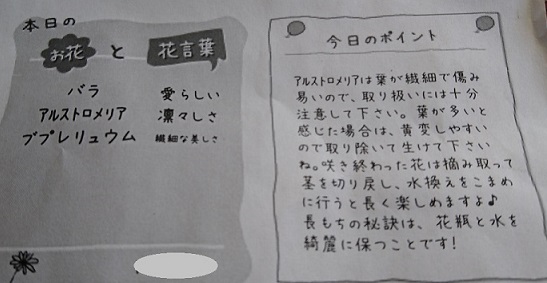 本日の
お花 と 花言葉
バラ 愛らしい
アルストロメリア 凛々しさ
ブプレリュウム 繊細な美しさ
今日のポイント
アルストロメリアは葉が繊細で傷み
易いので、取り扱いには十分
注意して下さい。葉が多いと
感じた場合は、黄変しやすい
ので取り除いて生けて下さい
ね。咲き終わった花は摘み取って
茎を切り戻し、水換えをこまめ
に行うと長く楽しめますよ♪
長もちの秘訣は、花瓶と水を
綺麗に保つことです!